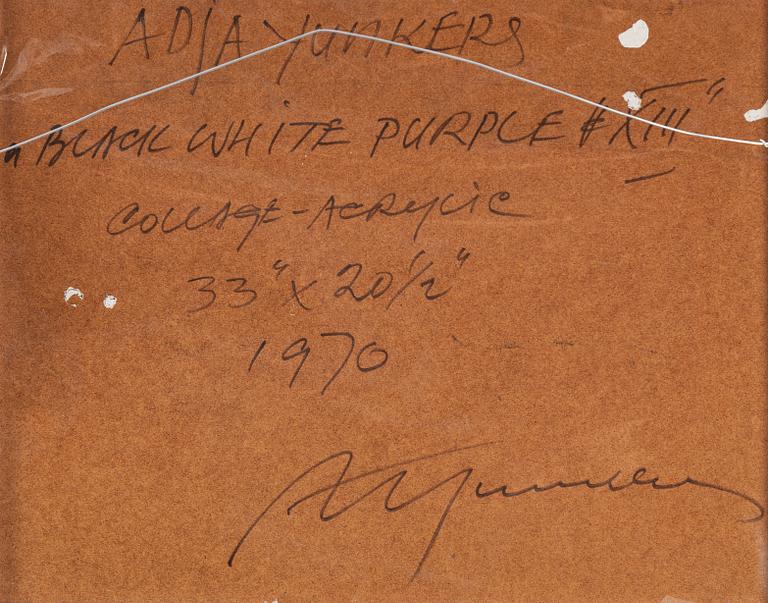 ADJA YUNKERS
"BLACK WHITE PURPLE #XIII"
COLLAGE-ACRYLIC
33" x 20 1/2"
1970
A Yunkers